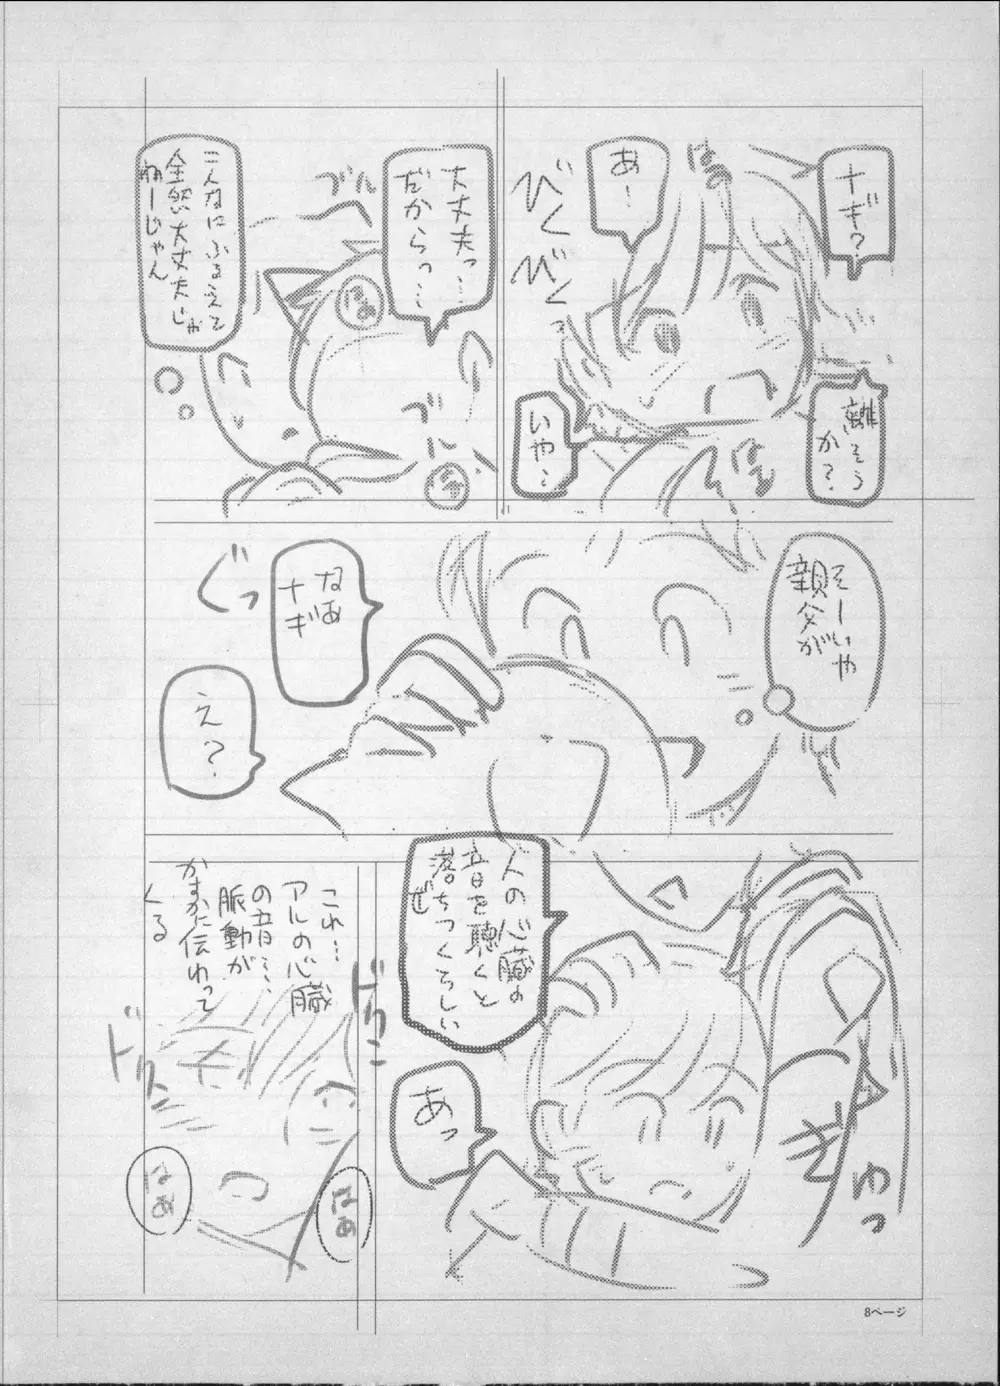 ナギ?
離そう
か?
あ…
いや…
びくびく
はぁ
はぁ
大丈夫っ…
だからっ…
ブル
ブル
はぁ
はぁ
こんなにふるえて
全然大丈夫じゃ
ねーじゃん
そーいや
親父が
なあ
ナギ
ぐっ
え?
人の心臓の
音を聴くと
落ちつくらしい
ぜ
ぎゅっ
あっ
ドクン
これ…
アルの心臓
の音…
脈動が
かすかに伝わって
くる
ドクン
はぁ
はぁ
8ページ